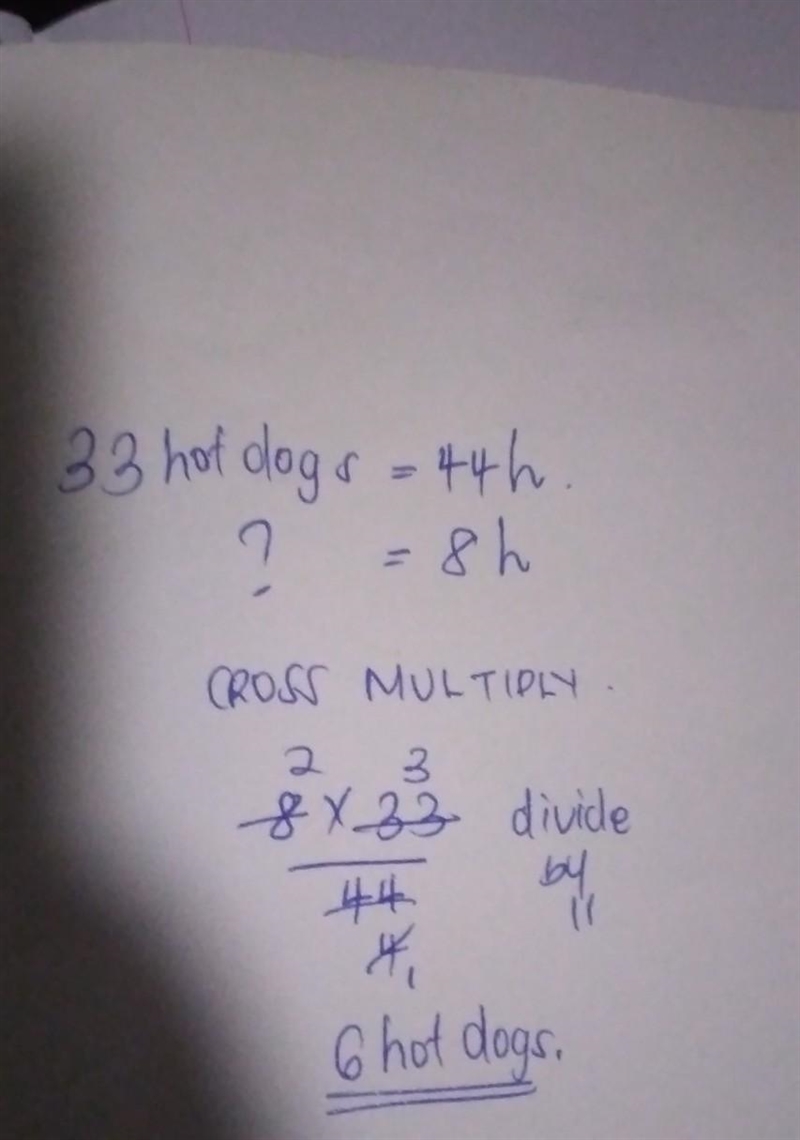 33 hot dogs = 44h.
? = 8h
CROSS MULTIPLY.
2 3
8 x 33 divide
44 by
4 11
1
6 hot dogs.